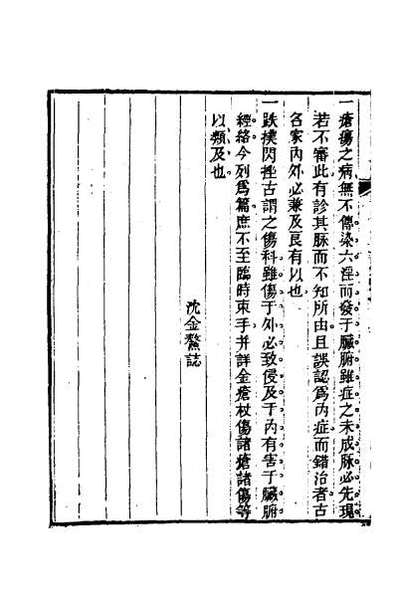 一瘡瘍之病無不傳染六淫而發于臟腑雖症之未成脉必先現
若不審此有診其脉而不知所由且誤認爲內症而錯治者古
名家內外必兼及良有以也
一跌撲閃挫古謂之傷科雖傷于外必致侵及于內有害于臟腑
經絡今列爲篇庶不至臨時束手并詳金瘡杖傷諸瘡諸傷等
以類及也
沈金鰲誌